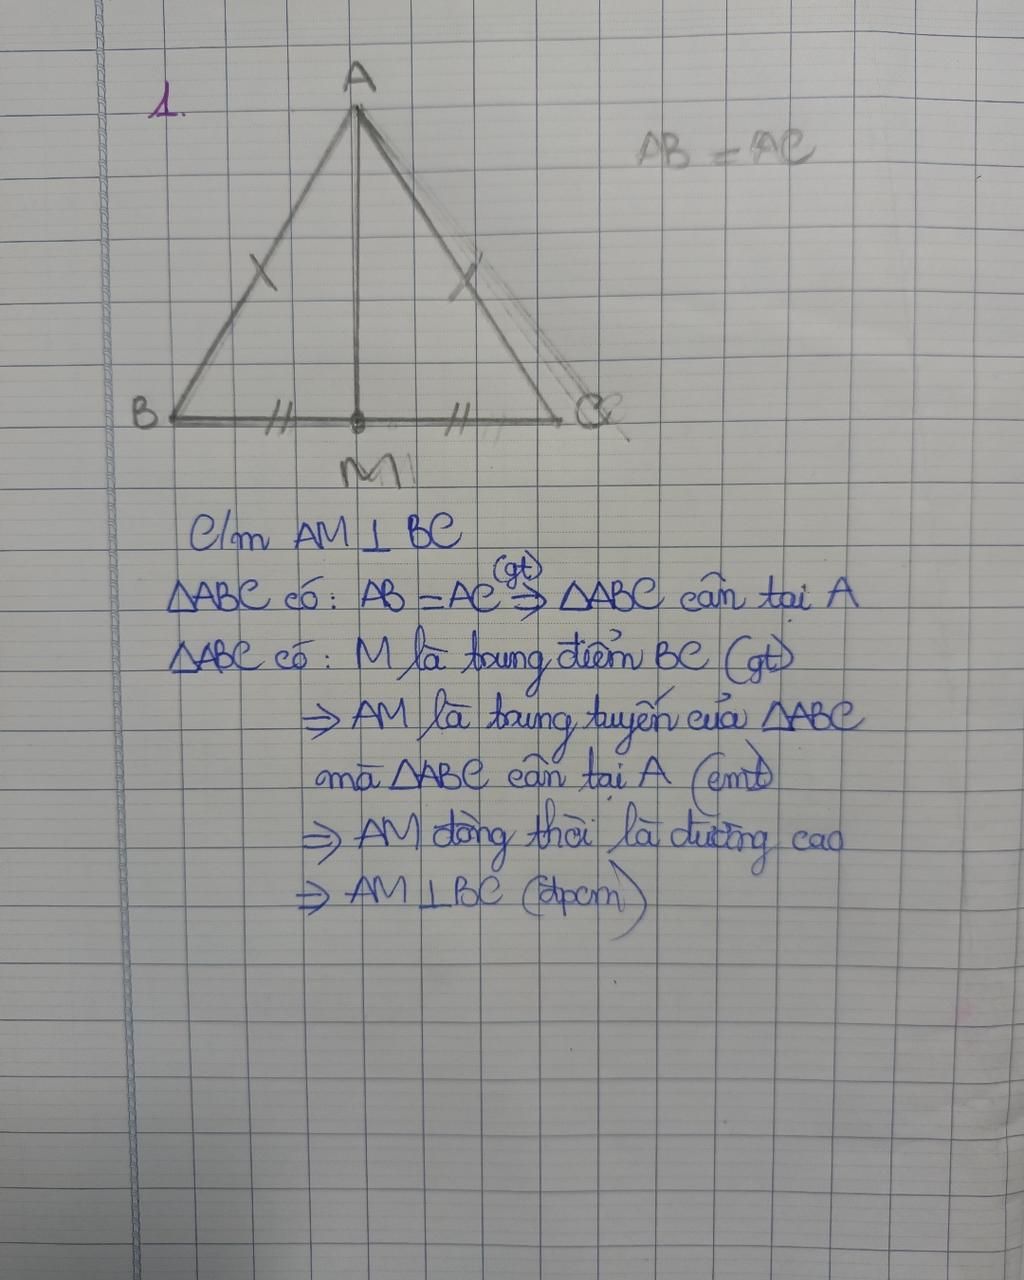 1.
A
AB = AC
B
C
M
C/m AM ⊥ BC
ΔABC có: AB = AC (gt) ⇒ ΔABC cân tại A
ΔABC có: M là trung điểm BC (gt)
⇒ AM là trung tuyến của ΔABC
mà ΔABC cân tại A (cmt)
⇒ AM đồng thời là đường cao
⇒ AM ⊥ BC (đpcm)